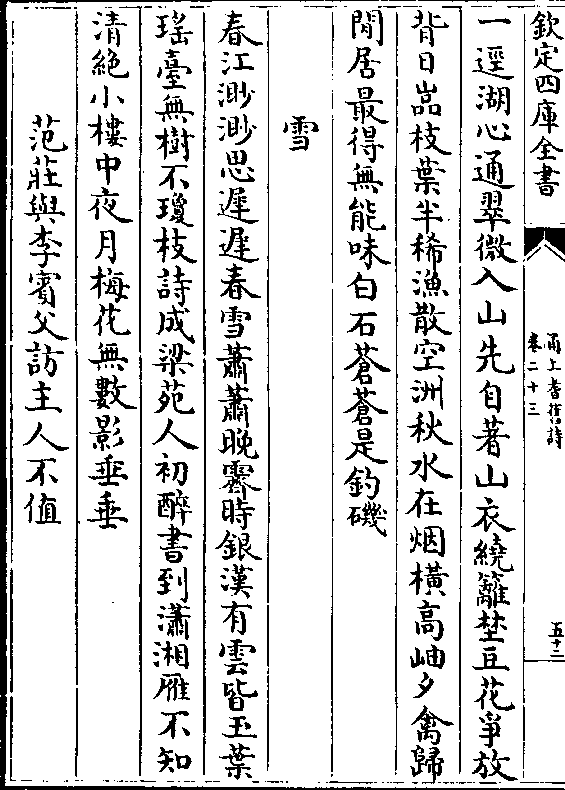 欽定四庫全書
甬上耆舊詩
卷二十三
五十二
一逕湖心通翠微入山先自著山衣繞籬埜豆花爭放
背日嵓枝葉半稀漁散空洲秋水在烟橫高岫夕禽歸
閒居最得無能味白石蒼蒼是釣磯
雪
春江渺渺思遲遲春雪蕭蕭晚霽時銀漢有雲皆玉葉
瑤臺無樹不瓊枝詩成梁苑人初醉書到瀟湘雁不知
清絶小樓中夜月梅花無數影垂垂
范莊與李賓父訪主人不值